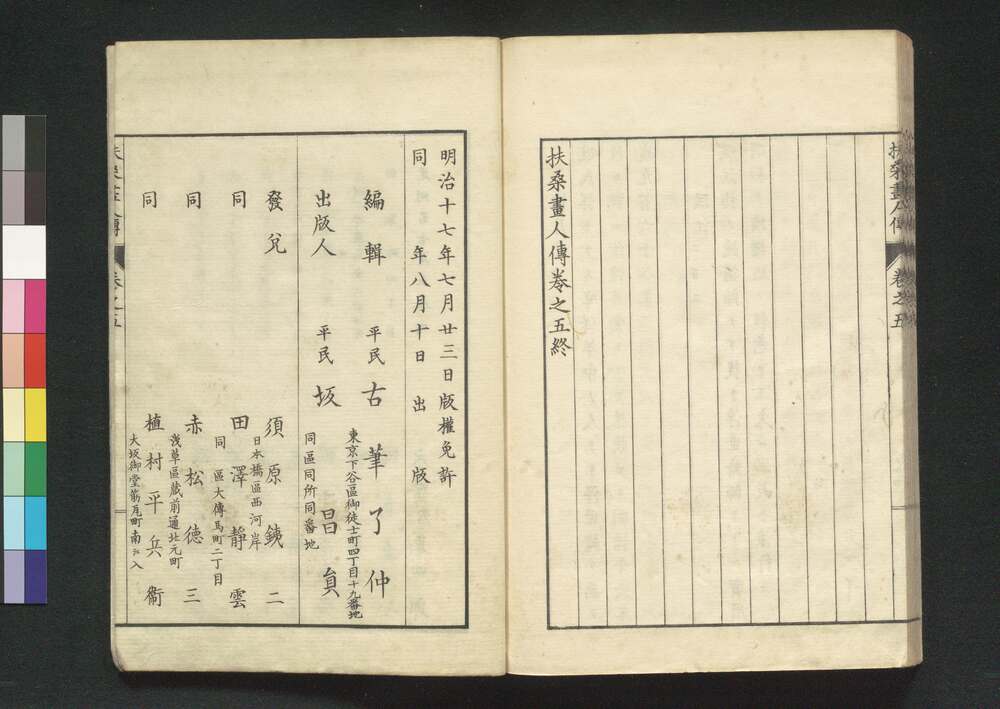 扶桑畫人傳
卷之五
扶桑畫人傳卷之五終
明治十七年七月廿三日版權免許
同　年八月十日　出　版
編輯　平民　古筆了仲
東京下谷區御徒士町四丁目十九番地
出版人　平民　坂昌員
同區同所同番地
發兌　須原銕二
日本橋區西河岸
同　田澤靜雲
同　區大傳馬町二丁目
同　赤松德三
淺草區藏前通北元町
同　植村平兵衞
大坂御堂筋瓦町南江入
卷之五